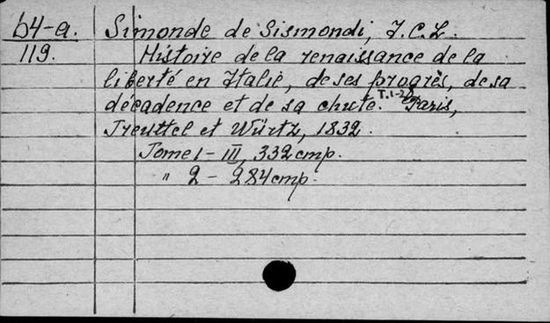 64-a. Simonde de Sismondi, J.C.L.
119. Histoire de la renaissance de la
liberté en Italie, de ses progrès, de sa
décadence et de sa chute. T.1-2 Paris,
Treuttel et Würtz, 1832.
Tome 1 - III, 332 cmp.
" 2 - 284 cmp.